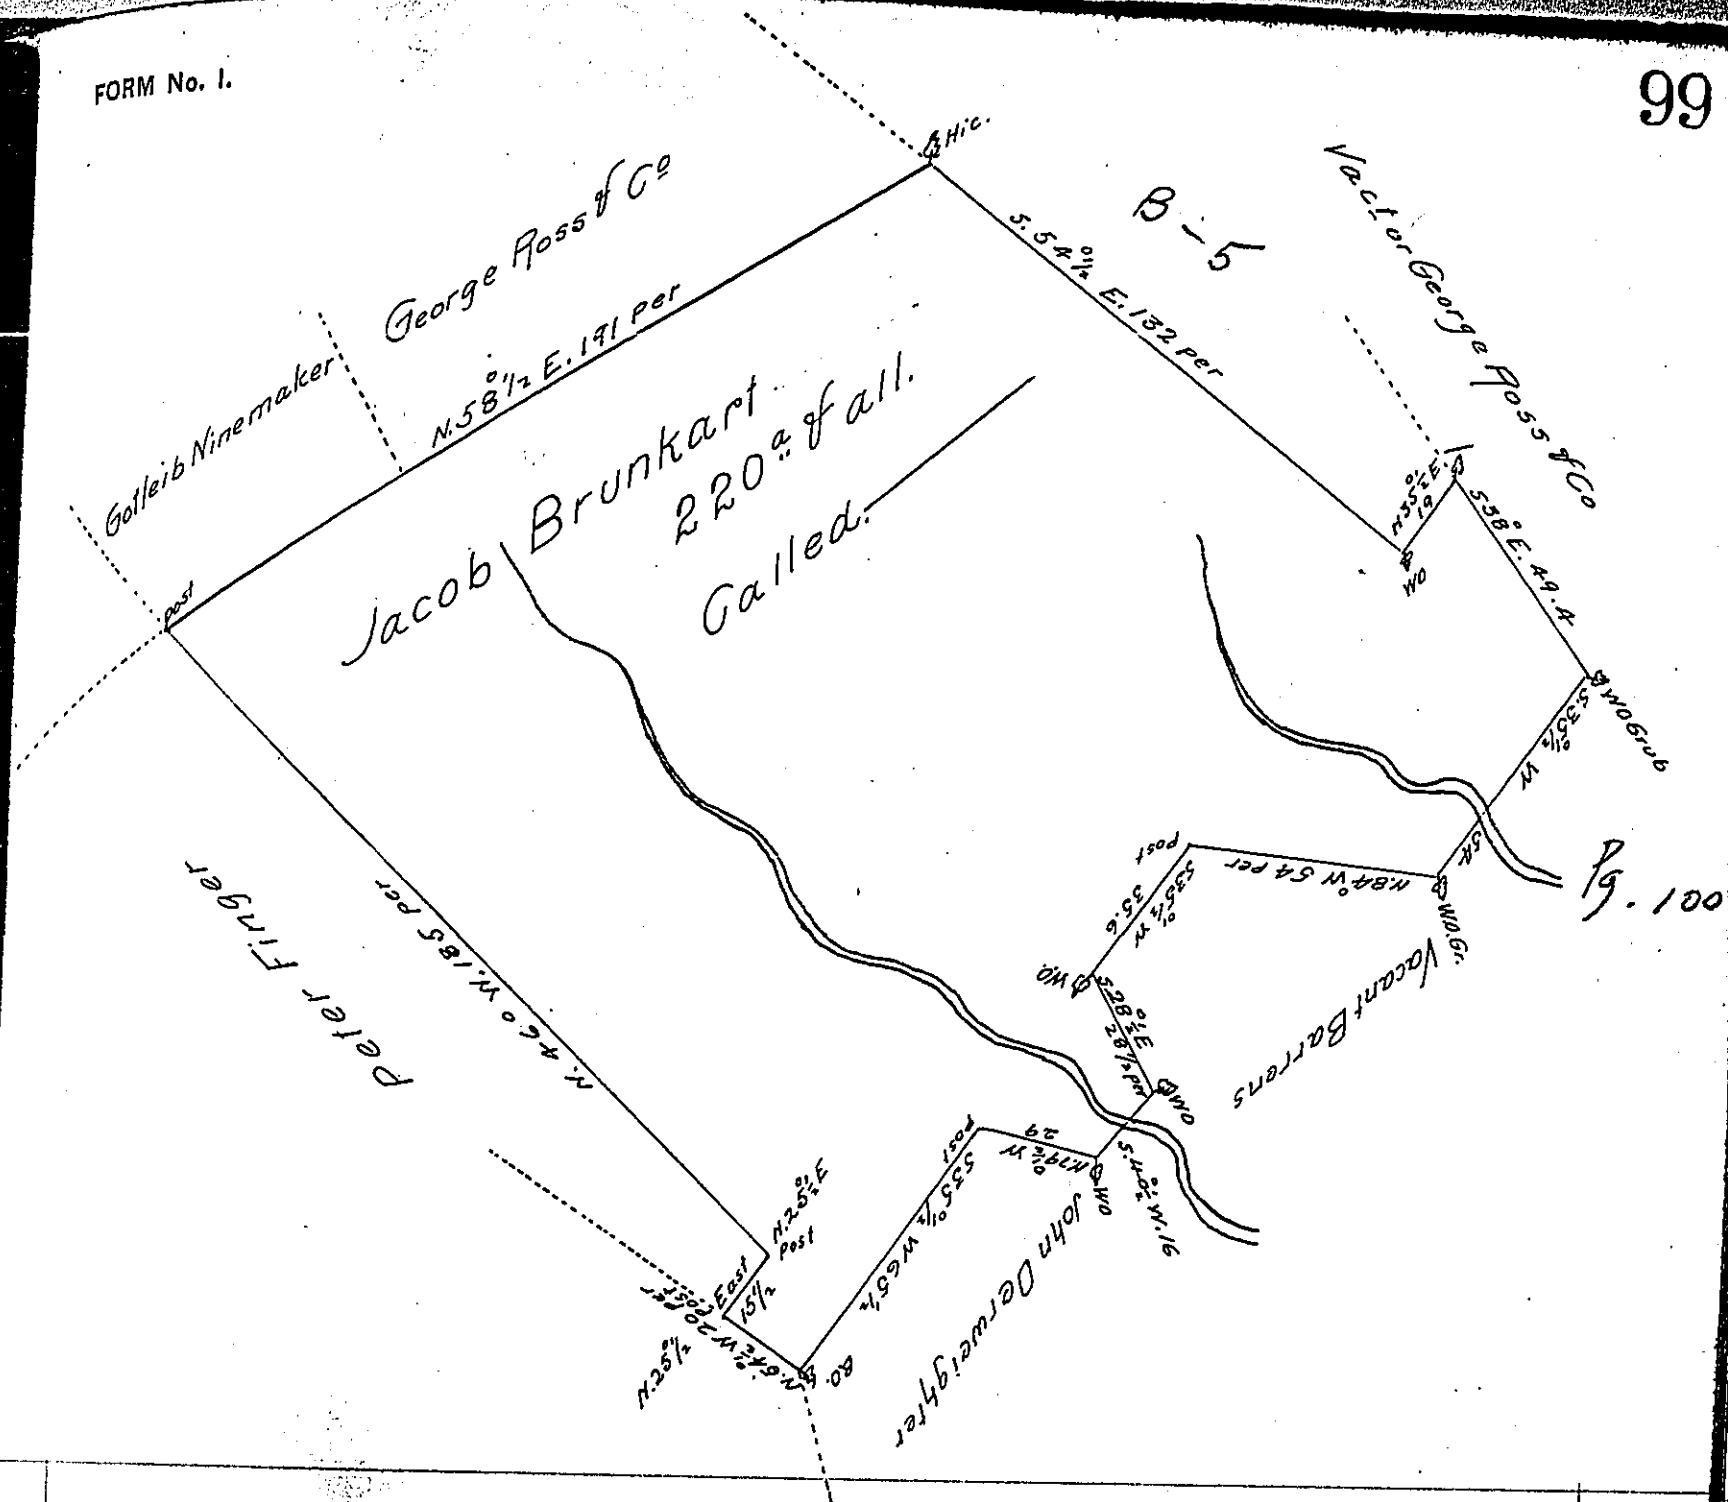 FORM No. 1.
99
Hic.
George Ross & Co
B-5
Vact or George Ross & Co
Gotleib Ninemaker
N. 58°1/2 E. 191 per
S. 54°1/2 E. 132 per
Jacob Brunkart
220 a .. & all.
Called.
post
N 35°1/2 E.
19
WO
S 58° E. 49.4
WO Grub
S. 35°1/2 W
54
Pg. 100
W.O. Gr.
N. 84° W 54 per
Post
S 35°1/2 W
35.6
W.O.
S 28°1/2 E
28 1/2 per
WO
Vacant Barrens
S. 40°1/2 W. 16
WO
N 79°1/2 W
29
Post
S 35°1/2 W 65 1/2
John Derweighter
Peter Finger
N. 46° W. 185 per
N. 25°1/2 E
Post
East
15 1/2
Post
N. 64°1/2 W 20 per
N. 25°1/2